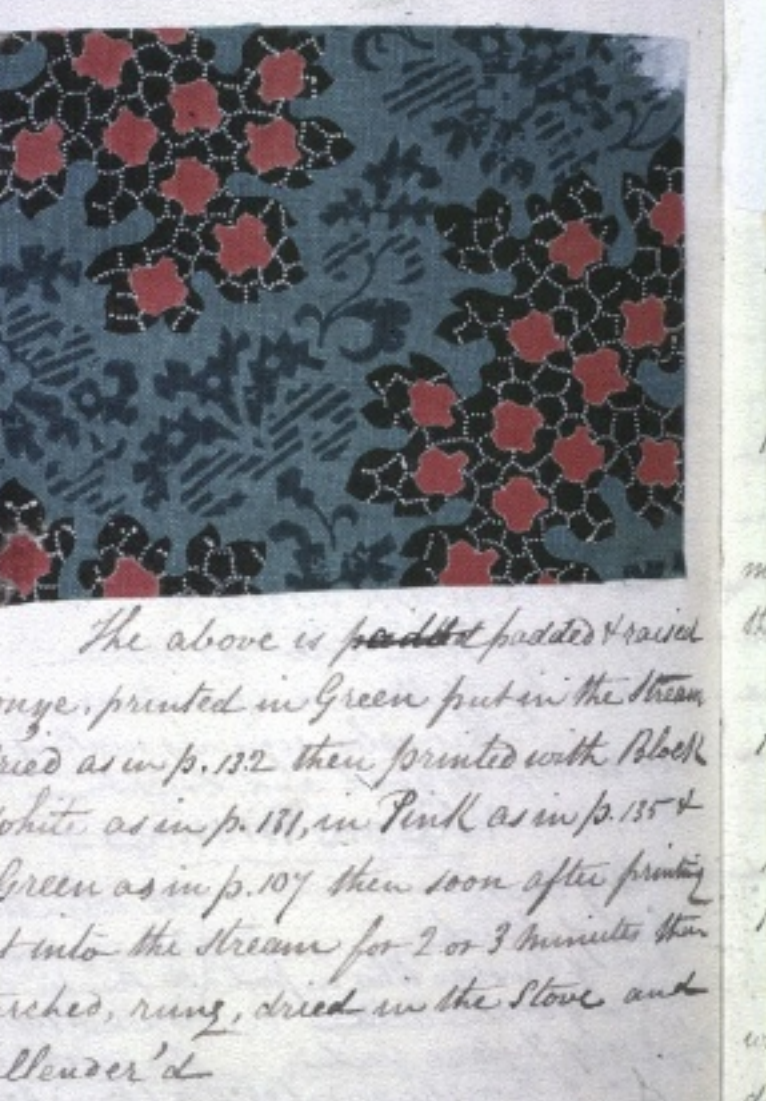 The above is padded padded & raised
onge. printed in Green put in the Stream
ried as in p. 132 then printed with Block
White as in p. 131, in Pink as in p. 135 &
Green as in p. 107 then soon after printing
t into the stream for 2 or 3 minutes then
rched, rung, dried in the Stove and
llender'd